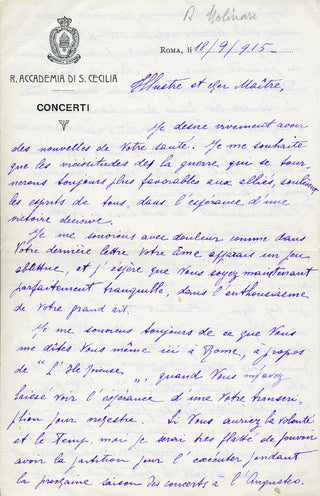 B Molinari
Roma, li 18/9/915_
R. ACCADEMIA DI S. CECILIA
CONCERTI
Illustre et cher Maître,
Je desire vivement avoir
des nouvelles de Votre santé. Je me souhaite
que les vicissitudes de la guerre, qui se tour
nerons toujours plus favorables aux alliés, soulèvent
les esprits de tous, dans l'espérance d'une
victoire décisive.
Je me souviens avec douleur comme dans
Votre dernière lettre Votre âme apparais un peu
abbattue, et j'éspère que Vous soyez maintenant
parfaitement tranquille, dans l'enthousiasme
de Votre grand art.
Je me souviens toujours de ce que Vous
me dites Vous même ici à Rome, à propos
de "L'Isle Joyeuse", quand Vous m'avez
laissé voir l'espérance d'une Votre transcri-
ption pour orchestre. Si Vous auriez la volonté
et le temp, moi je serai très flatté de pouvoir
avoir la partition pour l'exécuter pendant
la prochaine saison des concerts à l'Augusteo.